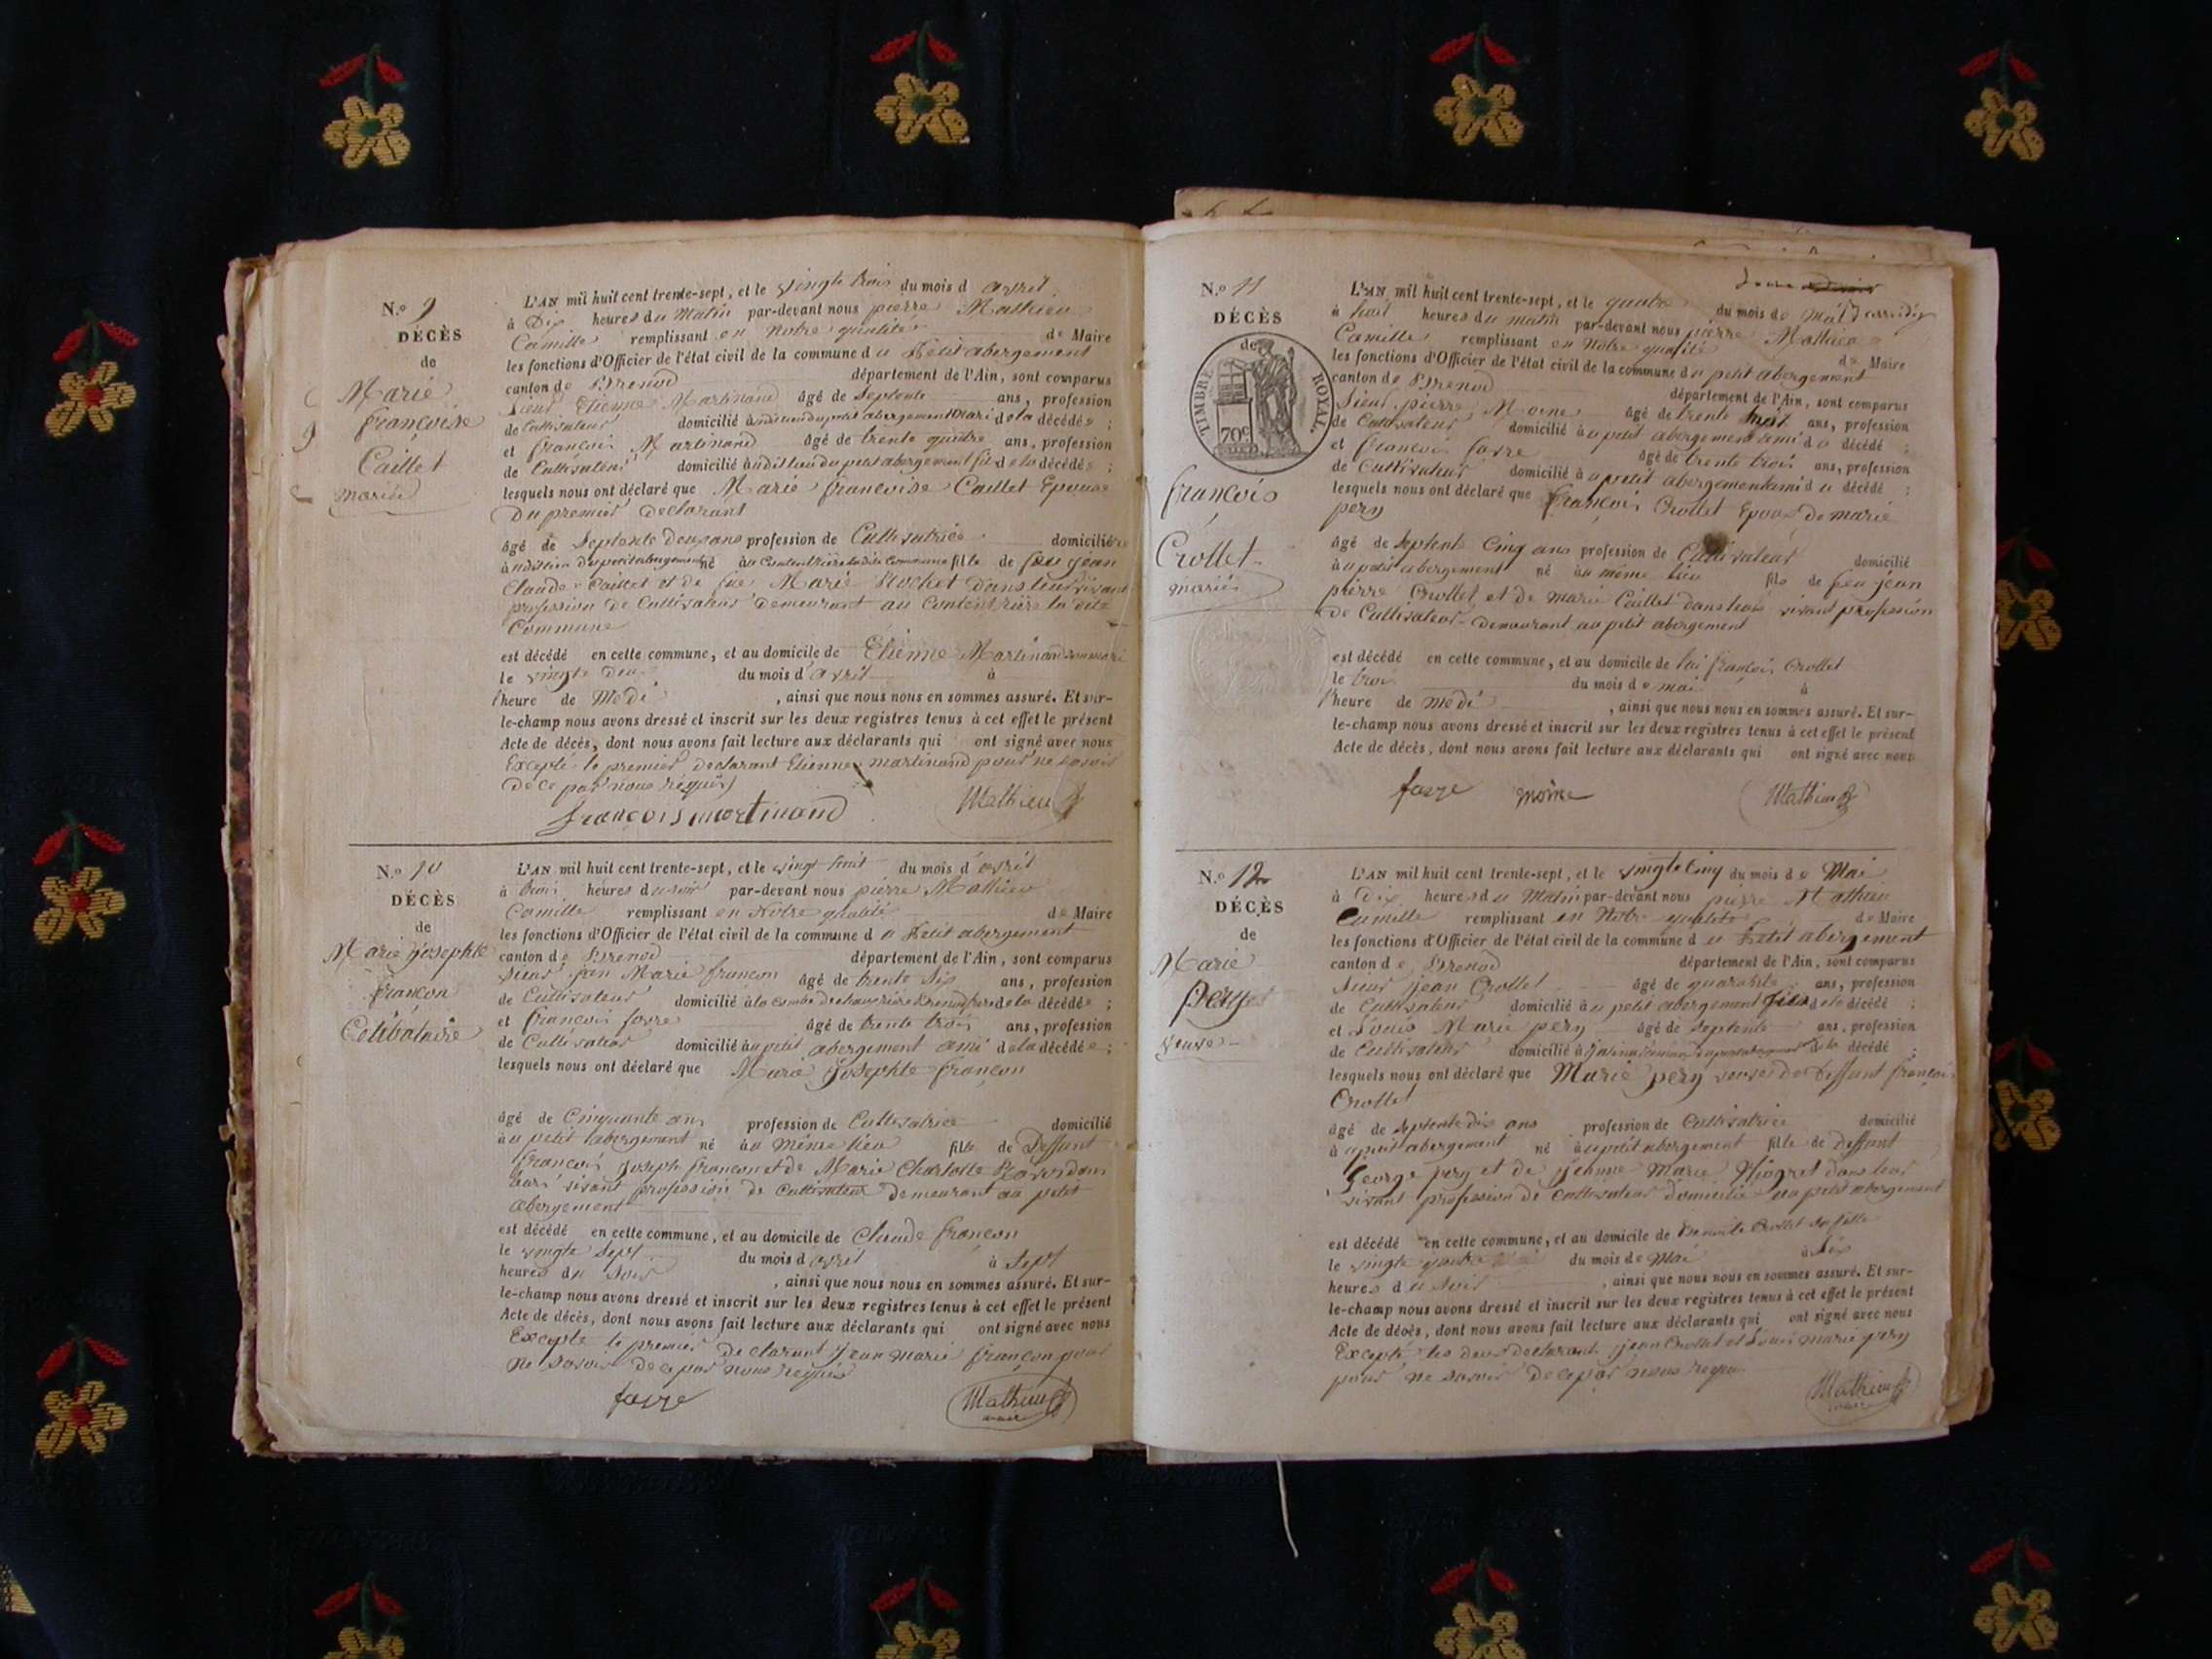 N.º 9
DÉCÈS
de
Marie
françoise
Caillet
mariée
L'AN mil huit cent trente-sept, et le vingte trois du mois d avril
à Dix heures du matin par-devant nous pierre Mathieu
Camille remplissant en notre qualité de Maire
les fonctions d'Officier de l'état civil de la commune du Petit abergement
canton de Brenod département de l'Ain, sont comparus
Sieur Etienne Martinand âgé de septente ans, profession
de Cultivateur domicilié petit abergement Mari de la décédée ;
et françois Martinand âgé de trente quatre ans, profession
de Cultivateur domicilié audit lieu du petit abergement fils de la décédée ;
lesquels nous ont déclaré que Marie françoise Caillet Epouse
Du premier declarant
âgé de septente deux ans profession de Cultivatrice domicilié
né fille de feu jean
Claude Caillet et de fue Marie Rochet dans leur vivant
profession de Cultivateur demeurant au la dite
Commune
est décédé en cette commune, et au domicile de Etienne Martinand son mari
le vingte deux du mois d'avril à
l'heure de Medi , ainsi que nous nous en sommes assuré. Et sur-
le-champ nous avons dressé et inscrit sur les deux registres tenus à cet effet le présent
Acte de décès, dont nous avons fait lecture aux déclarants qui ont signé avec nous
Excepté le premier declarant Etienne martinand pour ne savoir
de ce par nous requis
françois martinand Mathieu
N.º 10
DÉCÈS
de
Marie josephte
françon
Celibataire
L'AN mil huit cent trente-sept, et le vingt huit du mois d'avril
à trois heures du soir par-devant nous pierre Mathieu
Camille remplissant en Notre qualité de Maire
les fonctions d'Officier de l'état civil de la commune du Petit abergement
canton de Brenod département de l'Ain, sont comparus
Sieur jean Marie françon âgé de trente Six ans, profession
de Cultivateur domicilié à la combe frere de la décédée ;
et françois favre âgé de trente trois ans, profession
de Cultivateur domicilié au petit abergement ami de la décédée ;
lesquels nous ont déclaré que Marie josephte françon
âgé de Cinquante ans profession de Cultivatrice domicilié
au petit abergement né au même lieu fille de Deffunt
françois joseph françon et de Marie Charlotte dans
leur vivant profession de Cultivateur demeurant au petit
abergement
est décédé en cette commune, et au domicile de Claude françon
le vingte sept du mois d avril à sept
heures du soir , ainsi que nous nous en sommes assuré. Et sur-
le-champ nous avons dressé et inscrit sur les deux registres tenus à cet effet le présent
Acte de décès, dont nous avons fait lecture aux déclarants qui ont signé avec nous
Excepte le premier declarant jean marie françon pour
ne savoir de ce par nous requis
favre Mathieu
maire
N.º 11
DÉCÈS
de
TIMBRE ROYAL.
70c
françois
Crollet
mariés
L'AN mil huit cent trente-sept, et le quatre du mois de mai
à huit heures du matin par-devant nous pierre Mathieu
Camille remplissant en Notre qualité de Maire
les fonctions d'Officier de l'état civil de la commune du petit abergement
canton de Brenod département de l'Ain, sont comparus
Sieur pierre Moine âgé de trente huit ans, profession
de Cultivateur domicilié au petit abergement ami du décédé ;
et françois favre âgé de trente trois ans, profession
de Cultivateur domicilié au petit abergement ami du décédé ;
lesquels nous ont déclaré que françois Crollet Epoux de marie
pery
âgé de septente Cinq ans profession de Cultivateur domicilié
au petit abergement né au même lieu fils de feu jean
pierre Crollet et de marie Caillet dans leur vivant profession
de Cultivateur demeurant au petit abergement
est décédé en cette commune, et au domicile de lui françois Crollet
le trois du mois de mai à
l'heure de medi , ainsi que nous nous en sommes assuré. Et sur-
le-champ nous avons dressé et inscrit sur les deux registres tenus à cet effet le présent
Acte de décès, dont nous avons fait lecture aux déclarants qui ont signé avec nous
favre moine Mathieu
N.º 12
DÉCÈS
de
Marie
veuve
L'AN mil huit cent trente-sept, et le vingte Cinq du mois de Mai
à Dix heures du Matin par-devant nous pierre Mathieu
Camille remplissant en Notre qualité de Maire
les fonctions d'Officier de l'état civil de la commune du Petit abergement
canton de Brenod département de l'Ain, sont comparus
Sieur jean Crollet âgé de quarante ans, profession
de Cultivateur domicilié au petit abergement fils de la décédé ;
et Louis Marie pery âgé de septente ans, profession
de Cultivateur domicilié à de la décédé ;
lesquels nous ont déclaré que Marie pery veuve de Deffunt françois
Crollet
âgé de septente dix ans profession de Cultivatrice domicilié
au petit abergement né au petit abergement fille de deffunt
George pery et de jeanne Marie dans leur
vivant profession de cultivateur domicilié au petit abergement
est décédé en cette commune, et au domicile de Benoite Crollet sa fille
le vingte quatre du mois de Mai à Six
heures du soir , ainsi que nous nous en sommes assuré. Et sur-
le-champ nous avons dressé et inscrit sur les deux registres tenus à cet effet le présent
Acte de décès, dont nous avons fait lecture aux déclarants qui ont signé avec nous
Excepté les deux declarant jean Crollet et Louis marie pery
pour ne savoir de ce par nous requis
Mathieu
maire